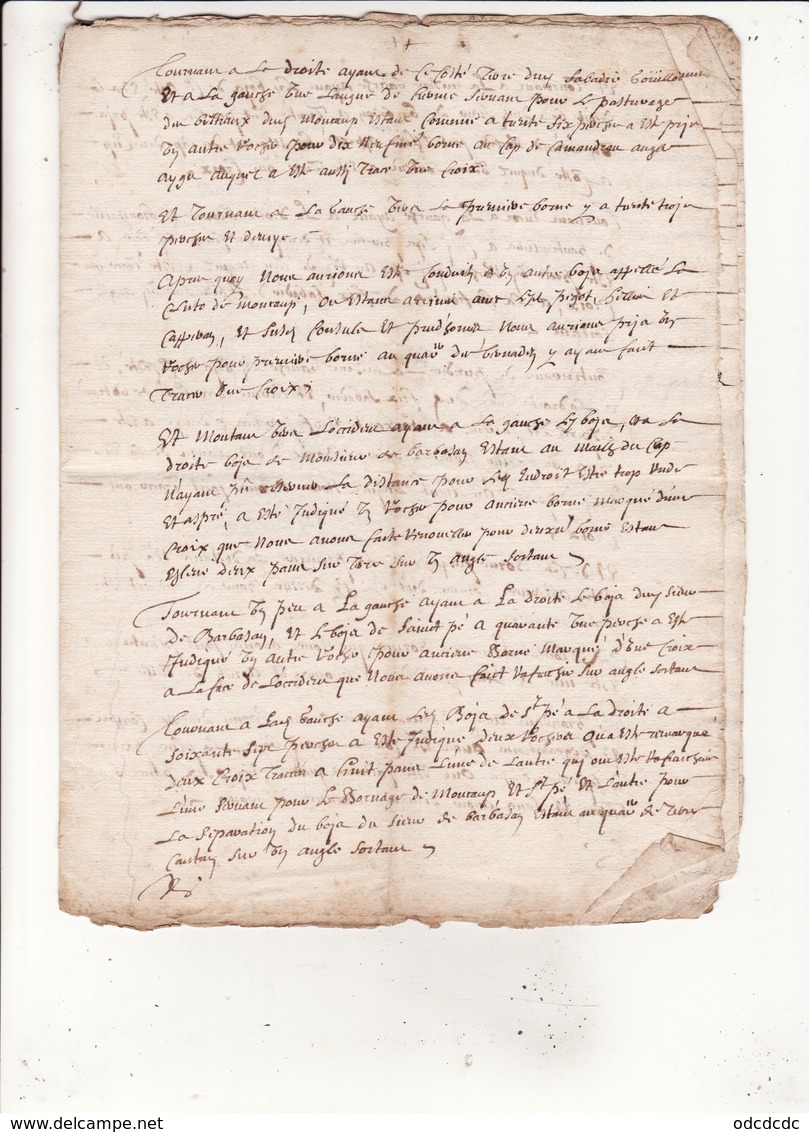 Tournant a La droite ayant de Ce Costé terre dud Sabadie
Et a La gauche Une Langue de terre servant pour Le pasturage
du bestiaux dud moncaup Estant Commune a trente six perches a Esté pris
Un autre Rocher pour dix neufme borne au Cap de
auquel a Esté aussy Tracé Une Croix
Et Tournant a La Gauche Vers La premiere borne y a trente trois
perches Et demye
Apres quoy Nous aurions Esté Conduits a Un autre bois appellé La
de moncaup, ou Estant arrivés avec Lesd pegot, Et
Et Susd Consuls Et prudhomes Nous aurions pris Un
Rocher pour premiere borne au quar du y ayant fait
Tracer Une Croix
Et Montant Vers Loccident ayant a La gauche Led bois, Et a La
droite bois de Monsieur de barbasan Estant au du Cap
Nayant pû La distance pour Led Endroit Estre trop Rude
Et aspre, a Esté Indiqué Un Rocher pour ancienne borne Marqué d'une
Croix que Nous avons faite Renouveller pour deuxme borne Estant
Eslevé deux pams sur terre sur Un Angle sortant
Tournant Un peu a La gauche ayant a La droite Le bois dud sieur
de Barbasan, Et Le bois de Sainct pé a quarante Une perches a Esté
Indiqué Un autre Rocher pour ancienne Borne Marqué d'Une Croix
a La face de Loccident que Nous avons faict Rafraichir sur angle sortant
Tournant a Lad Gauche ayant Led Bois de St pé a La droite a
soixante sept perches a Esté Indiqué deux Rochers qua Esté remarqué
deux Croix Tracées a huit pams Lune de Lautre qui ont Esté Rafraichies
Lune servant pour Le Bornage de Moncaup Et St pé Et Lautre pour
La separation du bois du sieur de barbasan Estant au quar de
sur Un angle sortant
odcdcdc